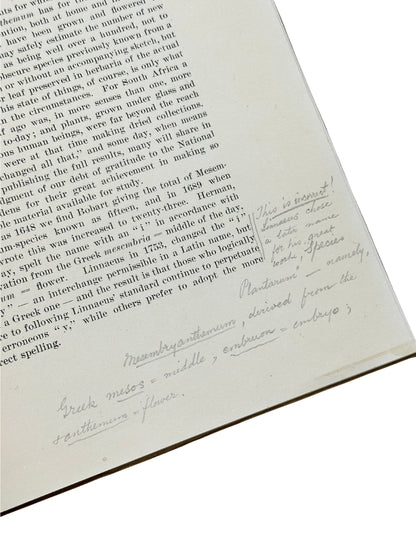 ats for wh
themum has for ma
vation, both at home and in
have been grown and flowered
ay safely estimate the number of new
as being well over a hundred, not to
obscure species previously known from a
or without an accompanying sketch, but
r leaf preserved in herbaria of the actual
his state of things, of course, is only what
the circumstances. For South Africa a
f ago was, in more senses than one, more
day; and plants, grown under glass and
ous human beings, were far beyond the reach
were at that time making dried collections.
changed all that," and some day, when means
publishing the full results, many will share in
dgment of our debt of gratitude to the National
dens for their great achievement in making so
le material available for study.
as 1648 we find Bobart giving the total of Mesem-
um-species known as fifteen, and in 1689 when Herman,
wrote this was increased to twenty-three.
ay, spelt the name with an "i" in accordance with
vation from the Greek mesembria = middle of the day,
um = flower. Linnaeus in 1753, changed the "i"
y" — an interchange permissible in a Latin name, but
a Greek one — and the result is that those who logically
e to following Linnaeus' standard continue to perpetuate
erroneous "y," while others prefer to adopt the more
rect spelling.
This is incorrect!
Linnaeus chose
a later name
for his great
work, "Species
Plantarum" — namely,
Mesembryanthemum, derived from the
Greek mesos = middle, embruon = embryo;
+ anthemum = flower.